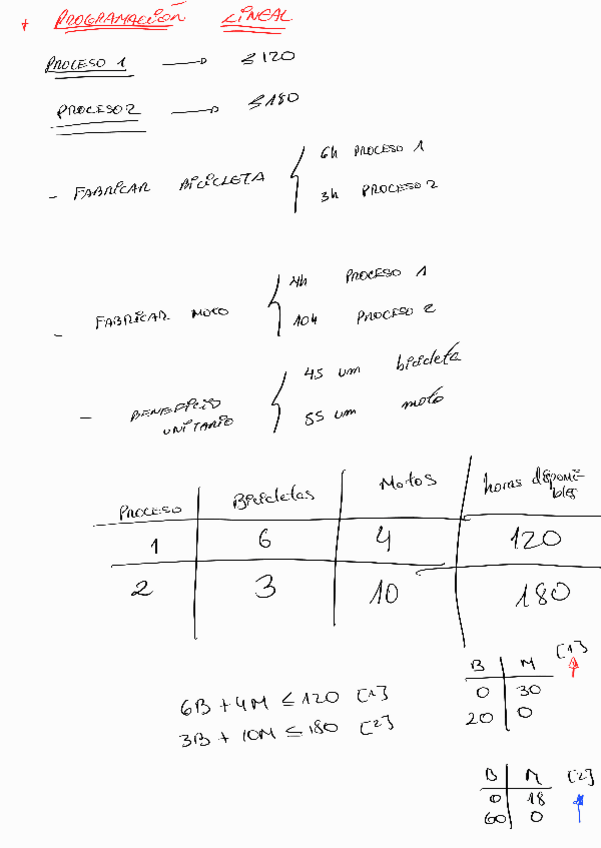 + PROGRAMACIÓN LINEAL
PROCESO 1 → ≤ 120
PROCESO 2 → ≤ 180
- FABRICAR BICICLETA { 6h PROCESO 1
3h PROCESO 2
- FABRICAR MOTO { 4h PROCESO 1
10h PROCESO 2
- BENEFICIO UNITARIO { 45 um bicicleta
55 um moto
PROCESO Bicicletas Motos horas disponibles
1 6 4 120
2 3 10 180
6B + 4M ≤ 120 [1]
3B + 10M ≤ 180 [2]
B M [1]
0 30
20 0
B M [2]
0 18
60 0